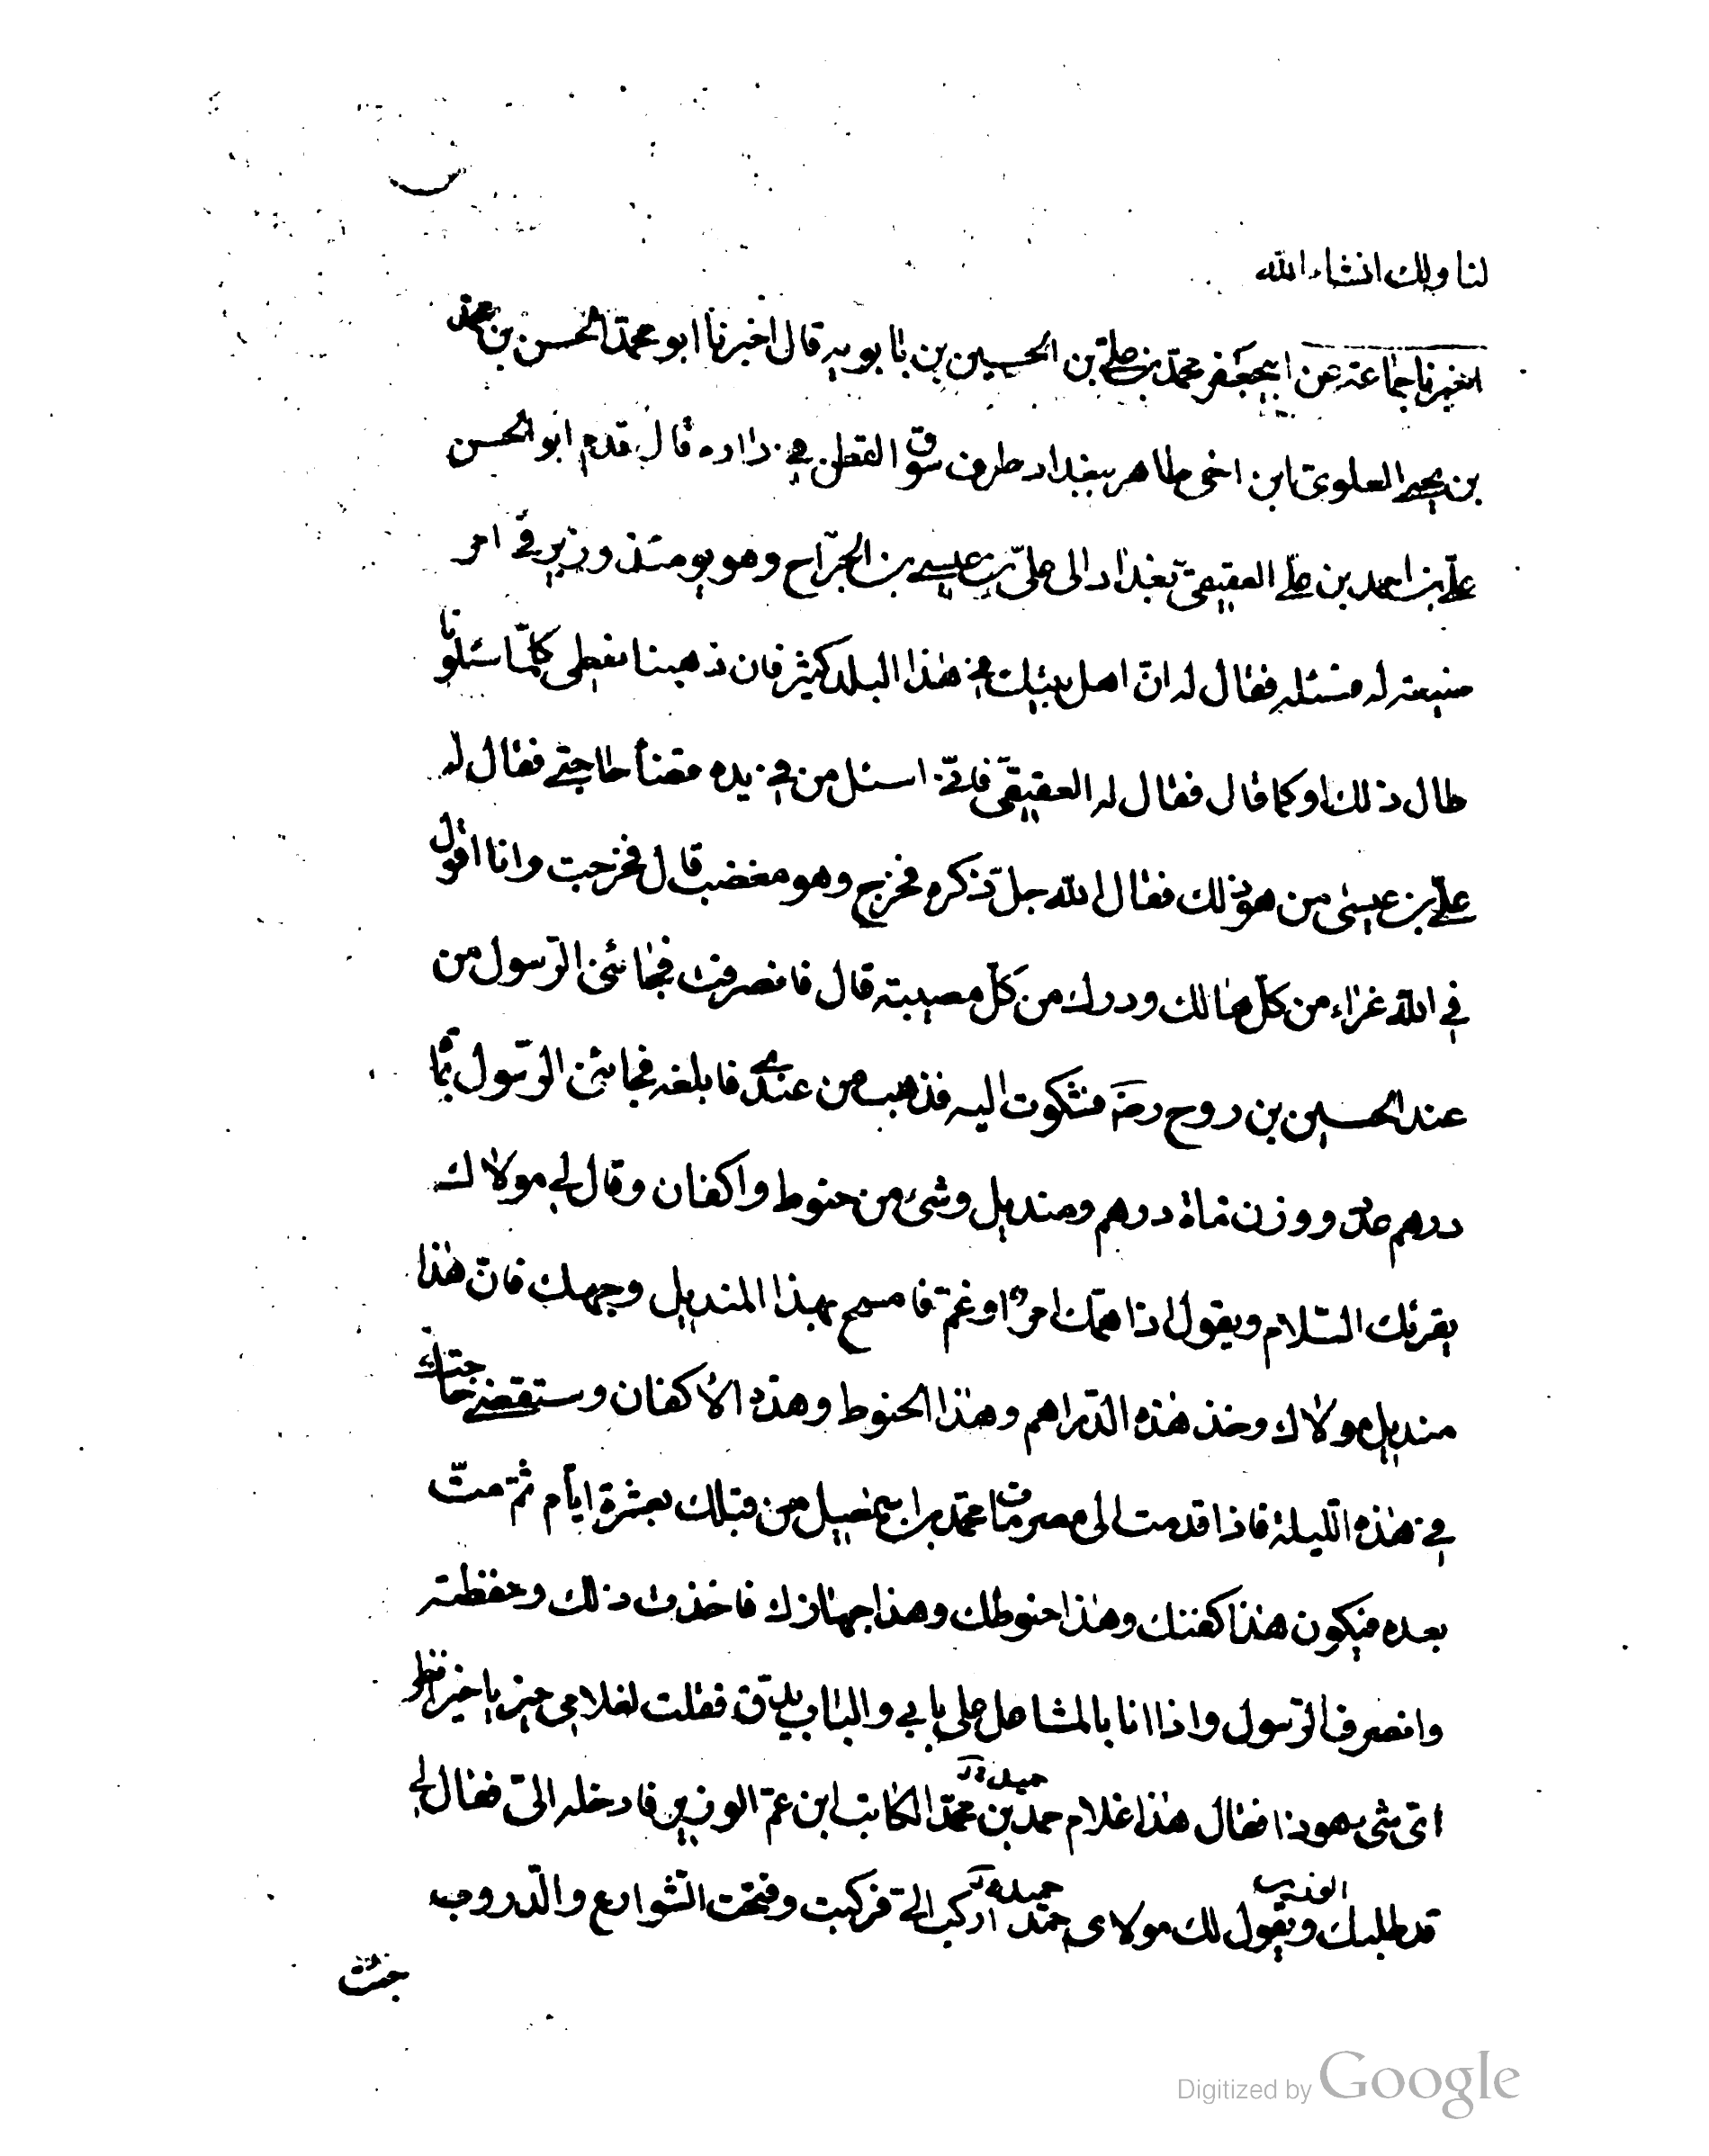 لنا ولك انشاء الله
اخبرنا جماعة عن ابيجعفر محمّد بن علىّ بن الحسين بن بابويه قال اخبرنا ابو محمّد الحسن بن محمّد
بن يحيى العلوىّ ابن اخى طاهر ببغداد طرف سوق القطن فى داره قال قدم ابو الحسن
علىّ بن احمد بن على العقيقىّ بغداد الى علىّ بن عيسى بن الجرّاح وهو يومئذ وزير فى امر
ضيعة له فسئله فقال له انّ اهل بيتك فى هذا البلد كثير فان ذهبنا نعطى كلّما سئلونا
طال ذلك او كما قال فقال له العقيقىّ فانّى اسئل من فى يده قضاء حاجتى فقال له
علىّ بن عيسى من هو ذلك فقال الله جلّ ذكره فخرج وهو مغضب قال فخرجت وانا اقول
فى الله عزاء من كلّ هالك ودرك من كلّ مصيبة قال فانصرفت فجائنى الرّسول من
عند الحسين بن روح رضه فشكوت اليه فذهب من عندى فابلغه فجائنى الرّسول بمأة
درهم عدد ووزن مأة درهم ومنديل وشىء من حنوط واكفان وقال لى مولاك
يقرئك السّلام ويقول اذا همّك امر او غمّ فامسح بهذا المنديل وجهك فانّ هذا
منديل مولاك وخذ هذه الدّراهم وهذا الحنوط وهذه الاكفان وستقضى حاجتك
فى هذه اللّيلة فاذا قدمت الى مصر مات محمّد بن اسمعيل من قبلك بعشرة ايّام ثمّ متّ
بعده فيكون هذا كفنك وهذا حنوطك وهذا جهازك فاخذت ذلك وحفظته
وانصرف الرّسول واذا انا بالمشاعل على بابى والباب يدقّ فقلت لغلامى خير يا خير انظر
اىّ شىء هو ذا فقال هذا غلام حمد بن محمّد الكاتب ابن عمّ الوزير فادخله الىّ فقال لى
قد طلبك الوزير ويقول لك مولاى حمد اركب الىّ فركبت وفتحت الشّوارع والدّروب
جئت
Digitized by Google